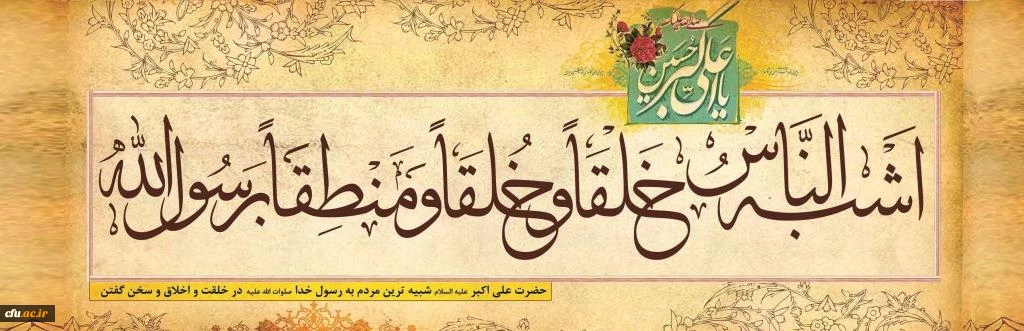 صلی الله علیک
یا علی اکبر حسین
اَشبَه النَّاسِ خَلقَاً وَ خُلقَاً وَ مَنْطِقَاً بِرَسُولِ الله
حضرت علی اکبر علیه السلام شبیه ترین مردم به رسول خدا صلوات الله علیه در خلقت و اخلاق و سخن گفتن
cfu.ac.ir